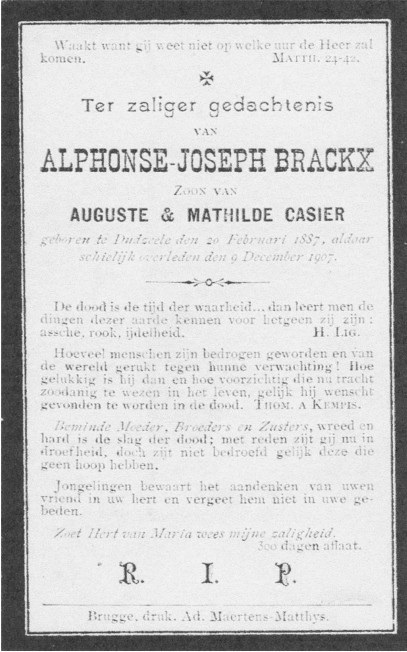 Waakt want gij weet niet op welke uur de Heer zal
komen. MATTH. 24-42.
Ter zaliger gedachtenis
VAN
ALPHONSE-JOSEPH BRACKX
ZOON VAN
AUGUSTE & MATHILDE CASIER
geboren te Dudzeele den 20 Februari 1887, aldaar
schielijk overleden den 9 December 1907.
De dood is de tijd der waarheid... dan leert men de
dingen dezer aarde kennen voor hetgeen zij zijn :
assche, rook, ijdelheid. H. LIG.
Hoeveel menschen zijn bedrogen geworden en van
de wereld gerukt tegen hunne verwachting! Hoe
gelukkig is hij dan en hoe voorzichtig die nu tracht
zoodanig te wezen in het leven, gelijk hij wenscht
gevonden te worden in de dood. THOM. A KEMPIS.
Beminde Moeder, Broeders en Zusters, wreed en
hard is de slag der dood; met reden zijt gij nu in
droefheid, doch zijt niet bedroefd gelijk deze die
geen hoop hebben.
Jongelingen bewaart het aandenken van uwen
vriend in uw hert en vergeet hem niet in uwe ge-
beden.
Zoet Hert van Maria wees mijne zaligheid.
300 dagen aflaat.
R. I. P.
Brugge, druk. Ad. Maertens-Matthys.